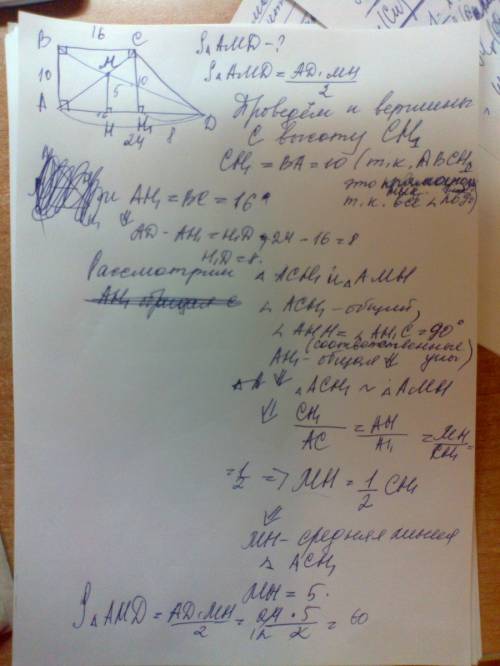 16
B C
10 M 5 10
A H H₁ D
24 8
S△AMD-?
S△AMD = AD·MH / 2
Проведём к вершины
C высоту CH₁
CH₁ = BA = 10 (т.к. ABCH₁
это
т.к. все ∠
AH₁ = BC = 16
AD - AH₁ = H₁D = 24 - 16 = 8
H₁D = 8.
Рассмотрим △ACH₁ и △AMH
∠ACH₁ - общий,
∠AHH = ∠AH₁C = 90°
(соответственные
AH₁ - общая углы)
△ACH₁ ~ △AMH
CH₁ / AC = AH / AH₁ = MH / CH₁ =
= 1/2 => MH = 1/2 CH₁
MH - средняя линия
△ ACH₁
MH = 5.
S△AMD = AD·MH / 2 = 24·5 / 2 = 60
12